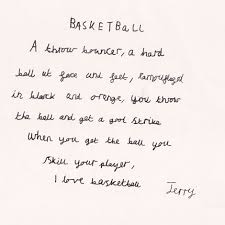 BASKETBALL
A throw bouncer, a hard
ball at face and feet, camouflaged
in black and orange, you throw
the ball and get a goal strike
When you get the ball you
skill your player,
I love basketball
Jerry